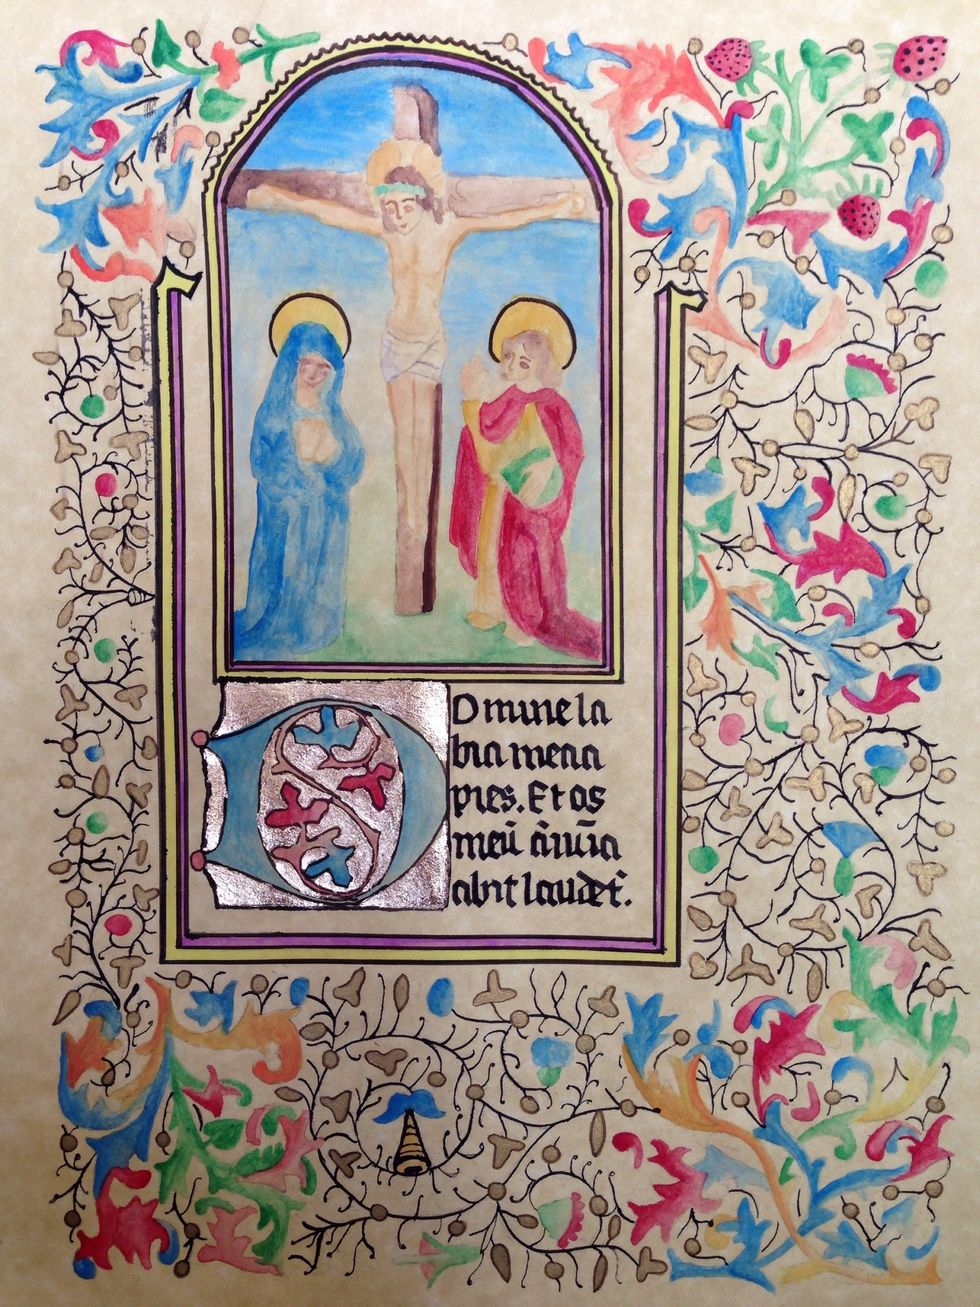 DOmine la
bia mea a
pies. Et os
meū ānūcia
abit laudet̄.